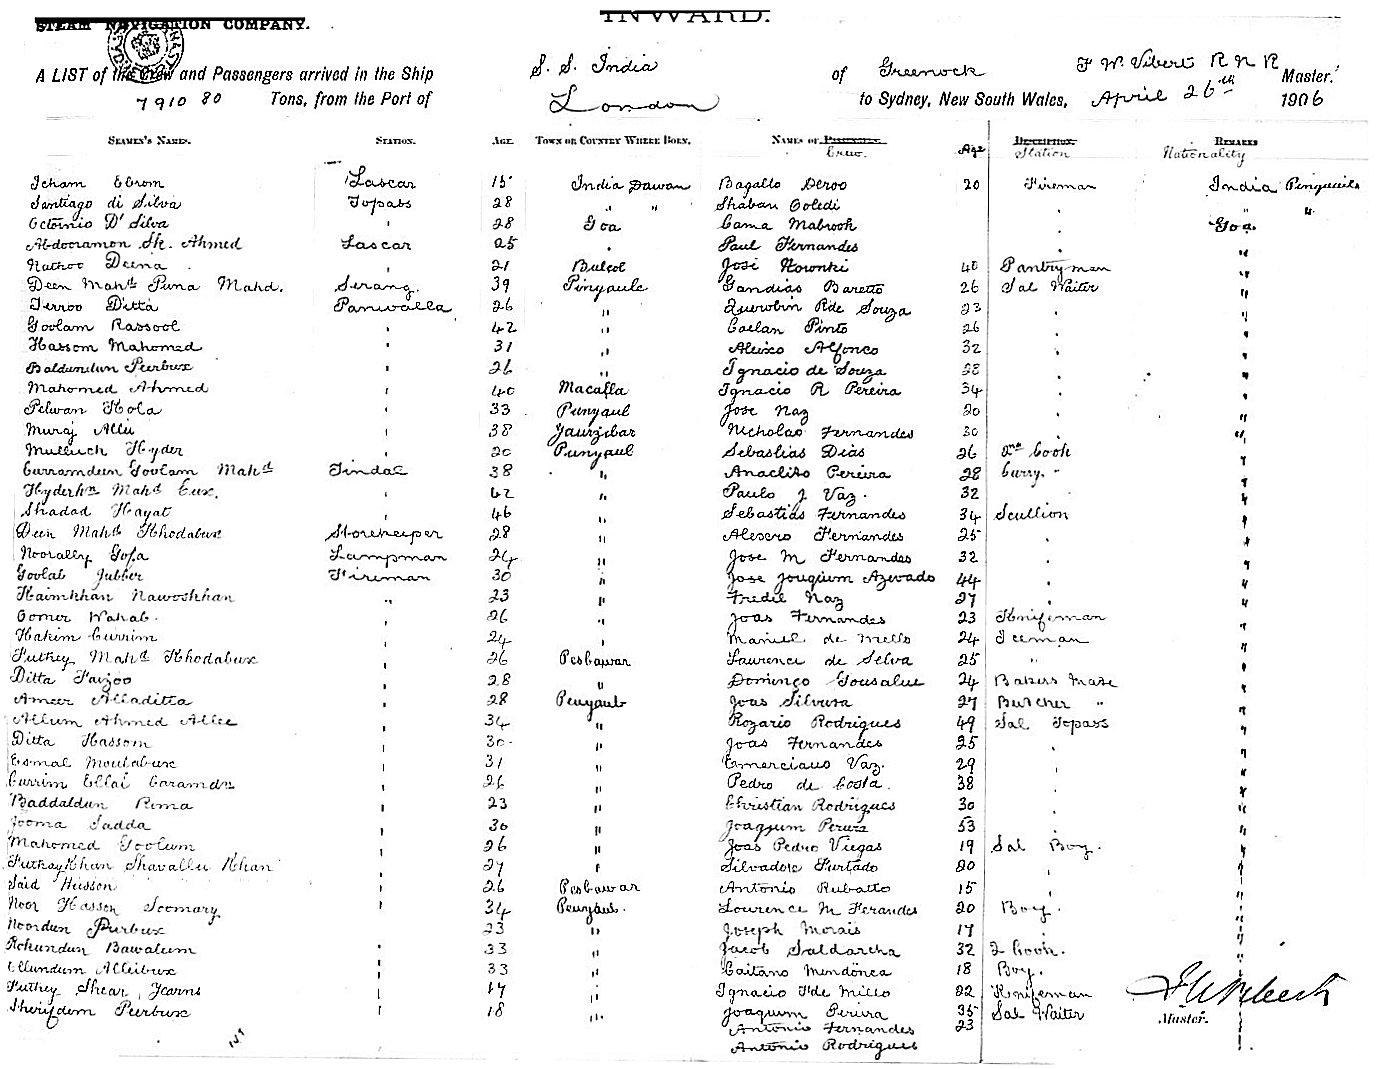 STEAM NAVIGATION COMPANY.
INWARD.
A LIST of the Crew and Passengers arrived in the Ship S. S. India of Greenock F W Vibert R N R Master.
7910 80 Tons, from the Port of London to Sydney, New South Wales, April 26th 1906
SEAMEN'S NAMES. STATION. AGE. TOWN OR COUNTRY WHERE BORN. NAMES OF PASSENGERS. Crew. Age DESCRIPTION. Station REMARKS Nationality
Icham Ebrom Lascar 15 India Dawan Bagallo Deroo 20 Fireman India
Santiago di Silva Topass 28 " " Shaban Coledi " "
Octonio D' Silva 28 Goa Cama Mabrook Goa
Abdooramon Sk. Ahmed Lascar 25 Paul Fernandes "
Nathoo Deena 21 José 40 Pantryman "
Deen Mahd Puna Mahd. Serang. 39 Baretto 26 Sal Waiter "
Ditta Paniwalla 26 " Rde Souza 23 "
Goolam Rassool 42 " Caelan Pinto 26 "
Hassom Mahomed 31 " Aleixo Alfonco 32 "
Peerbux 26 " Ignacio de Souza 28 "
Mahomed Ahmed 40 Macalla Ignacio R Pereira 34 "
Pelwan Hola 33 Punyaub Jose Naz 20 "
Muraj Alli 38 Nicholao Fernandes 30 "
Mulluck Hyder 20 Punyaub Sebastias Dias 26 2nd Cook "
Curramdeen Goolam Mahd Tindal 38 " Anaclito Pereira 28 Curry. " "
Mahd Cux. 42 " Paulo J Vaz. 32 "
Shadad Hayat 46 " Sebastias Fernandes 34 Scullion "
Deen Mahd Khodabux Storekeeper 28 " Fernandes 25 "
Noorally Gofa Lampman 24 " Jose M Fernandes 32 "
Goolab Jubber Fireman 30 " Jose Azevado 44 "
Haimkhan Nawoskhan 23 " Fredil Naz 27 "
Oomer Wahab. 26 " Joas Fernandes 23 Knifeman "
Hakim Currim 24 " Manuel de Mello 24 Iceman "
Futhey Mahd Khodabux 26 Peshawar Laurence de Selva 25 " "
Ditta Faijoo 28 " Domingo Gousalue 24 Bakers Mate "
Ameer Alladitta 28 Penyaub Joas Silvura 27 Butcher " "
Allum Ahmed Allee 34 " Rozario Rodrigues 49 Sal Topass "
Ditta Hassom 30 " Joas Fernandes 25 "
Esmal Moulabux 31 " Emerciano Vaz. 29 "
Currim Ellai 26 " Pedro de Costa. 38 "
Baddaldun Rima 23 " Christian Rodrigues 30 "
Jooma Sadda 30 " Joaquim 53 "
Mahomed Goolum 26 " Joas Pedro Viegas 19 Sal Boy. "
Shavallu Khan 27 " Silvadore Furtado 20 "
Said Husson 26 Peshawar Antonio Rubatto 15 "
Noor Hassen Soomary 34 Penyaub. Lourence M Ferandes 20 Boy. "
Noordun Purbux 23 " Joseph Morais 17 "
Rohundun Bawalum 33 " Jacob Saldarcha 32 2 Cook. "
Ellundum Alleibux 33 " Caitano Mendonca 18 Boy. "
Futhey Shear 17 " Ignacio F de Millo 22 Knifeman
Peerbux 18 " Joaquim Perira 35 Sal Waiter Master.
Antonio Fernandes 23
Antonio Rodrigues